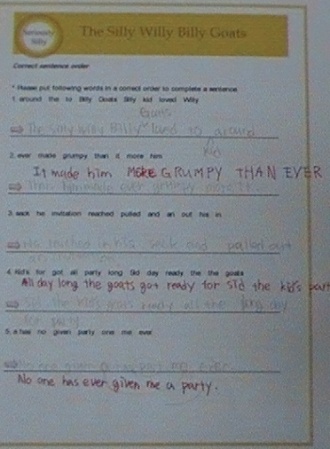 Seriously Silly
The Silly Willy Billy Goats
Correct sentence order
* Please put following words in a correct order to complete a sentence.
1. around the to Billy Goats Silly kid loved Willy
Goats
The silly willy Billy loved to around
kid
2. ever made grumpy than it more him
It made him MORE GRUMPY THAN EVER
3. sack he invitation reached pulled and an out his in
He reached in his sack and pulled out
an
4. Kid's for got all party long Sid day ready the the goats
All day long the goats got ready for Sid the kid's party
Sid the kids goats ready all the long day
for party
5. a has no given party one me ever
No one has ever given me a party.